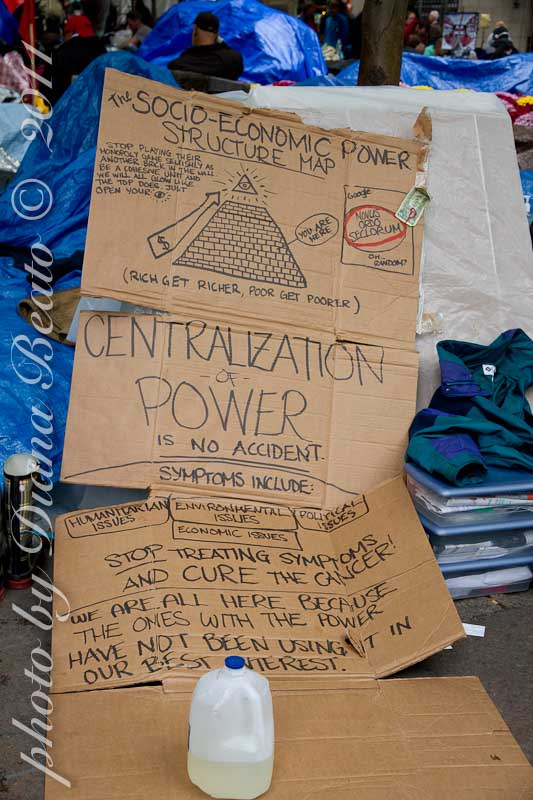 The SOCIO-ECONOMIC POWER
STRUCTURE MAP
STOP PLAYING THEIR
MONOPOLY GAME SELFISHLY AS
ANOTHER BRICK IN THE WALL
BE A COHESIVE UNIT AND
WE WILL ALL GLOW LIKE
THE TOP DOES. JUST
OPEN YOUR
$
YOU ARE
HERE
Google
NOVUS
ORDO
SECLORUM
OH...
RANDOM?
(RICH GET RICHER, POOR GET POORER)
CENTRALIZATION
-OF-
POWER
IS NO ACCIDENT.
SYMPTOMS INCLUDE:
HUMANITARIAN
ISSUES
ENVIRONMENTAL
ISSUES
ECONOMIC ISSUES
POLITICAL
ISSUES
STOP TREATING SYMPTOMS
AND CURE THE CANCER!
WE ARE ALL HERE BECAUSE
THE ONES WITH THE POWER
HAVE NOT BEEN USING IT IN
OUR BEST INTEREST.
photo by Diana Beato © 2011